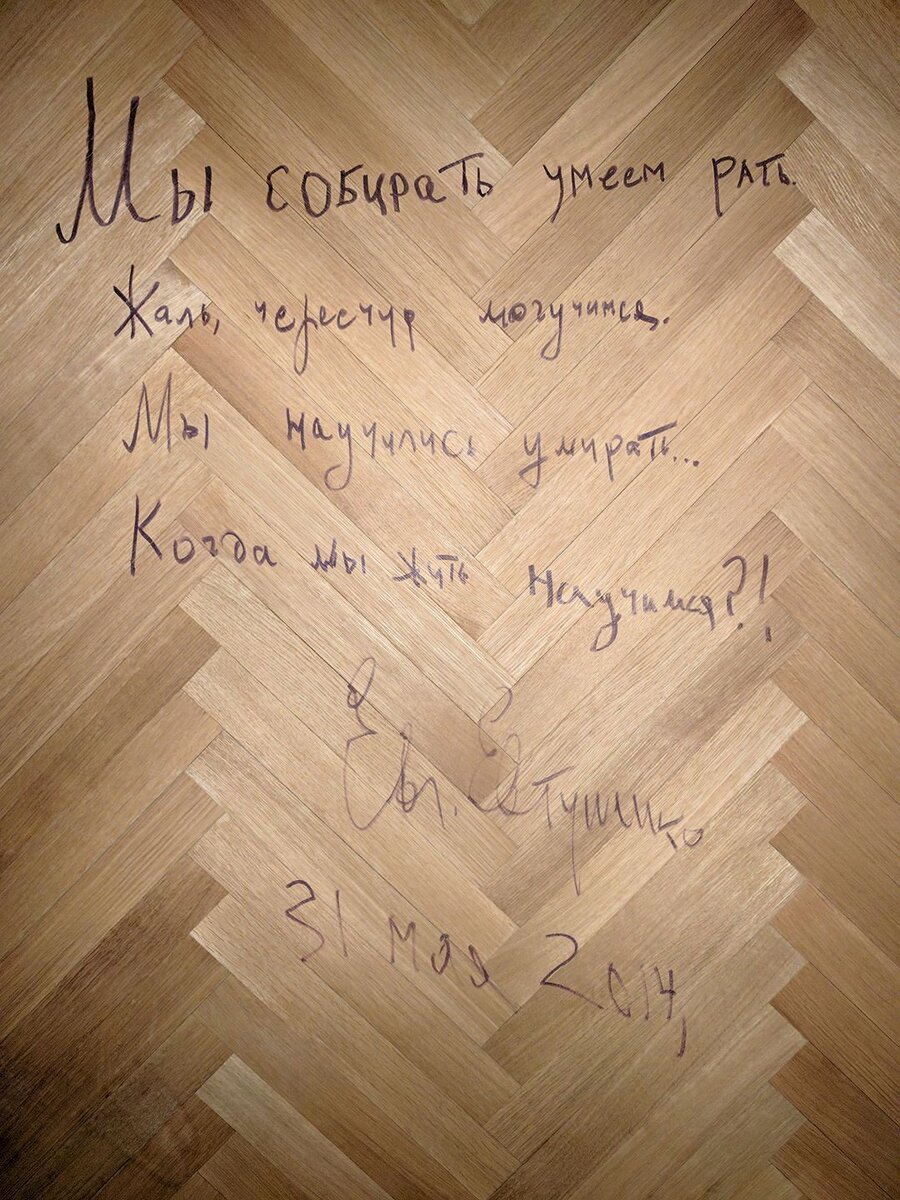 Мы собирать умеем рать.
Жаль, чересчур могучимся.
Мы научились умирать...
Когда мы жить научимся?!
Евг. Евтушенко
31 мая 2014,